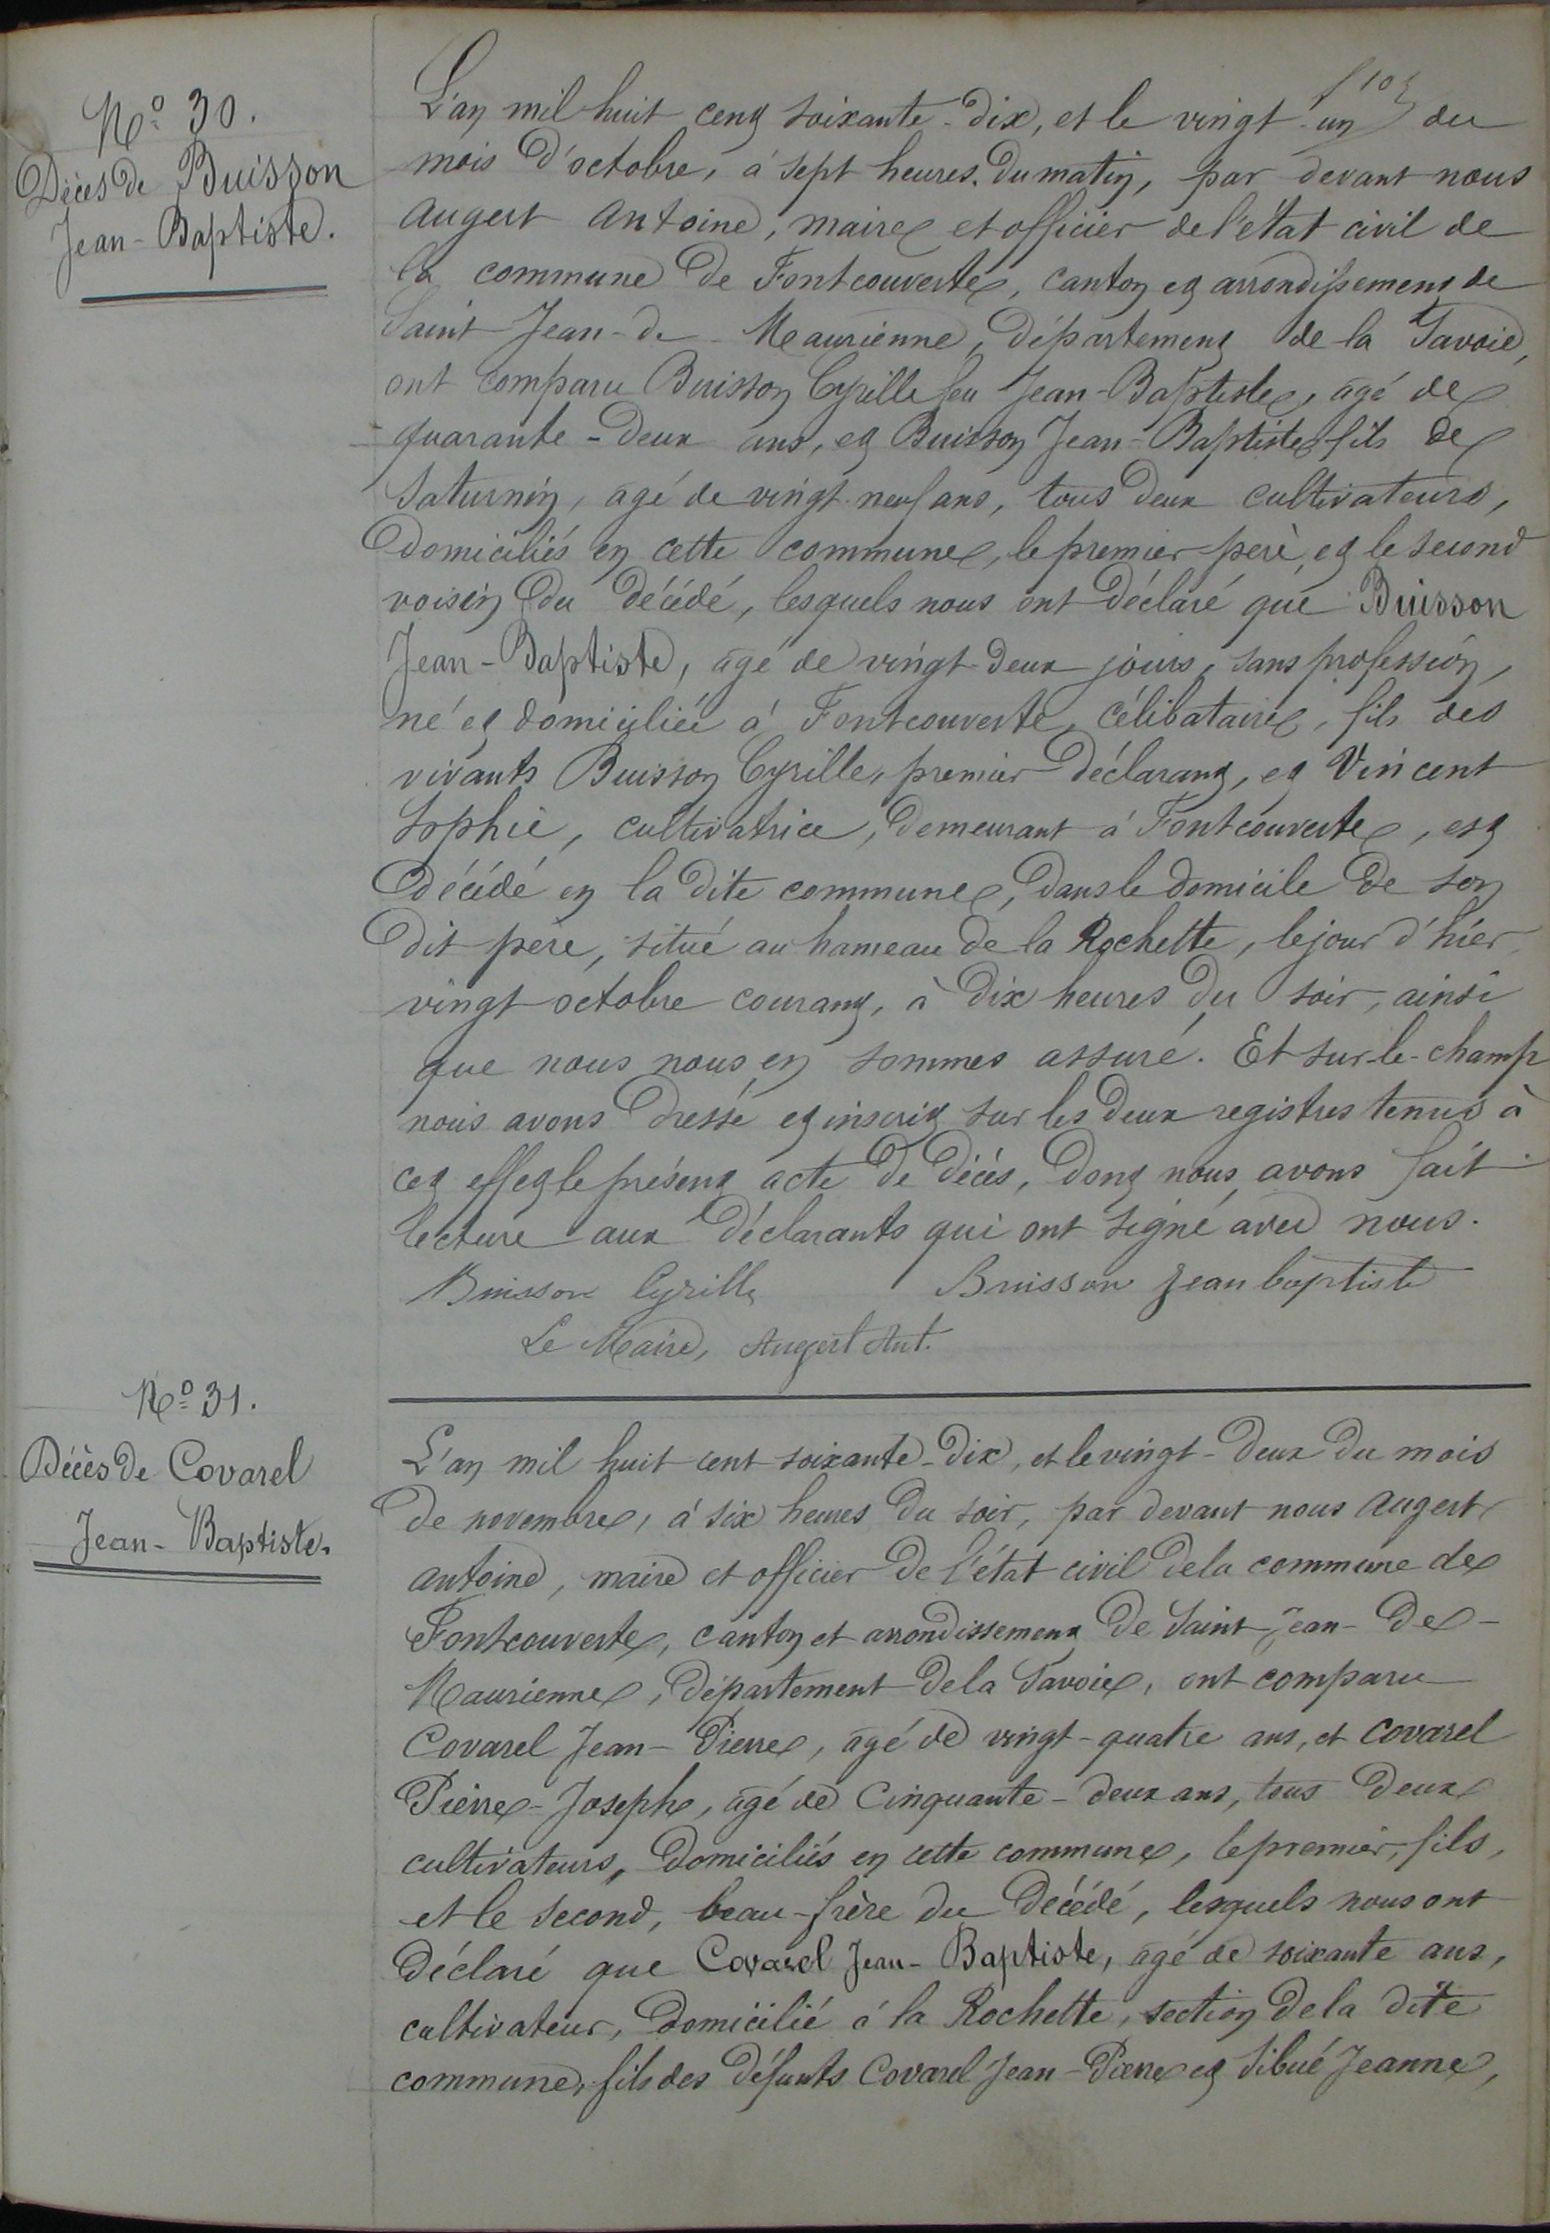 f 10
N° 30.
Décès de Buisson
Jean-Baptiste.
L'an mil huit cent soixante-dix, et le vingt-un du
mois d'octobre, à sept heures du matin, par devant nous
Augert Antoine, maire et officier de l'état civil de
la commune de Fontcouverte, canton et arrondissement de
Saint-Jean-de-Maurienne, département de la Savoie,
ont comparu Buisson Cyrille feu Jean-Baptiste, âgé de
quarante-deux ans, et Buisson Jean-Baptiste fils de
Saturnin, âgé de vingt-neuf ans, tous deux cultivateurs,
domiciliés en cette commune, le premier père, et le second
voisin du décédé, lesquels nous ont déclaré que Buisson
Jean-Baptiste, âgé de vingt-deux jours, sans profession,
né et domiciliée à Fontcouverte, célibataire, fils des
vivants Buisson Cyrille, premier déclarant, et Vincent
Sophie, cultivatrice, demeurant à Fontcouverte, est
décédé en la dite commune, dans le domicile de son
dit père, situé au hameau de la Rochette, le jour d'hier
vingt octobre courant, à dix heures du soir, ainsi
que nous nous en sommes assuré. Et sur-le-champ
nous avons dressé et inscrit sur les deux registres tenus à
cet effet le présent acte de décès, dont nous avons fait
lecture aux déclarants qui ont signé avec nous.
Buisson Cyrille Buisson Jean baptiste
Le Maire, Augert Ant.
N° 31.
Décès de Covarel
Jean-Baptiste.
L'an mil huit cent soixante-dix, et le vingt-deux du mois
de novembre, à six heures du soir, par devant nous Augert
Antoine, maire et officier de l'état civil de la commune de
Fontcouverte, canton et arrondissement de Saint-Jean-de-
Maurienne, département de la Savoie, ont comparu
Covarel Jean-Pierre, âgé de vingt-quatre ans, et Covarel
Pierre-Joseph, âgé de cinquante-deux ans, tous deux
cultivateurs, domiciliés en cette commune, le premier, fils,
et le second, beau-frère du décédé, lesquels nous ont
déclaré que Covarel Jean-Baptiste, âgé de soixante ans,
cultivateur, domicilié à la Rochette, section de la dite
commune, fils des défunts Covarel Jean-Pierre et Sibué Jeanne,